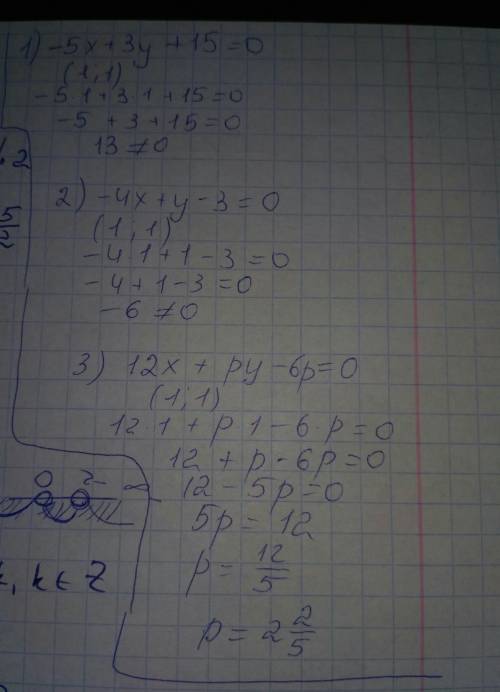 1) -5x+3y+15=0
(1;1)
-5·1+3·1+15=0
-5+3+15=0
13≠0
2) -4x+y-3=0
(1;1)
-4·1+1-3=0
-4+1-3=0
-6≠0
3) 12x+py-6p=0
(1;1)
12·1+p·1-6·p=0
12+p-6p=0
12-5p=0
5p=12
p=12/5
p=2 2/5
2
5/2
0 2
k∈Z